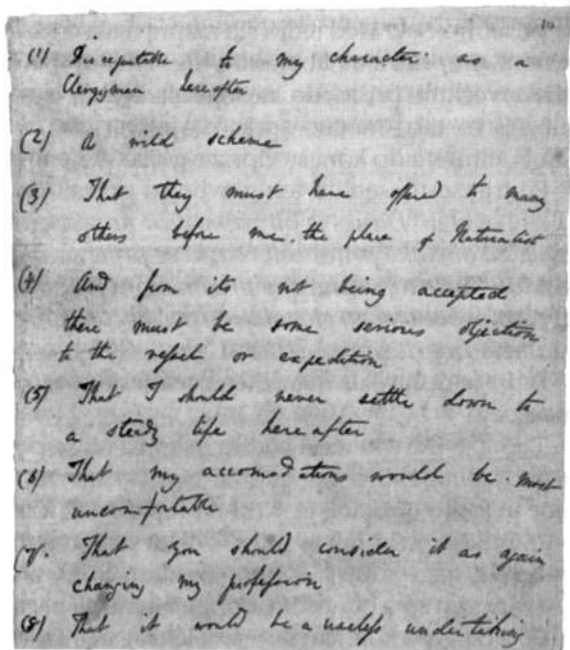 10
(1) Disreputable to my character as a
Clergyman hereafter
(2) A wild scheme
(3) That they must have offered to many
others before me, the place of Naturalist
(4) And from its not being accepted
there must be some serious objection
to the vessel or expedition
(5) That I should never settle down to
a steady life hereafter
(6) That my accomodations would be most
uncomfortable
(7). That you should consider it as again
changing my profession
(8) That it would be a useless undertaking